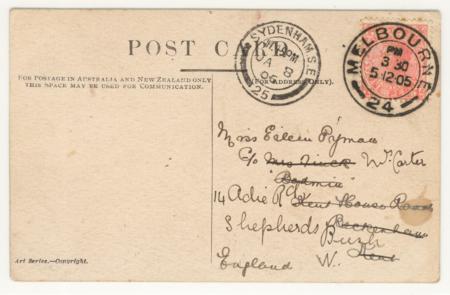 POST CARD
FOR POSTAGE IN AUSTRALIA AND NEW ZEALAND ONLY
THIS SPACE MAY BE USED FOR COMMUNICATION.
(FOR ADDRESS ONLY).
SYDENHAM S.E.
JA 8
06
25
MELBOURNE
PM
3 30
5 12 05
24
Miss Eileen Pyman
c/o Mrs Wm Carter
"Bodmin"
14 Adie Rd Kent House Road
Shepherds Beckenham
Bush Kent
England W.
Art Series.—Copyright.